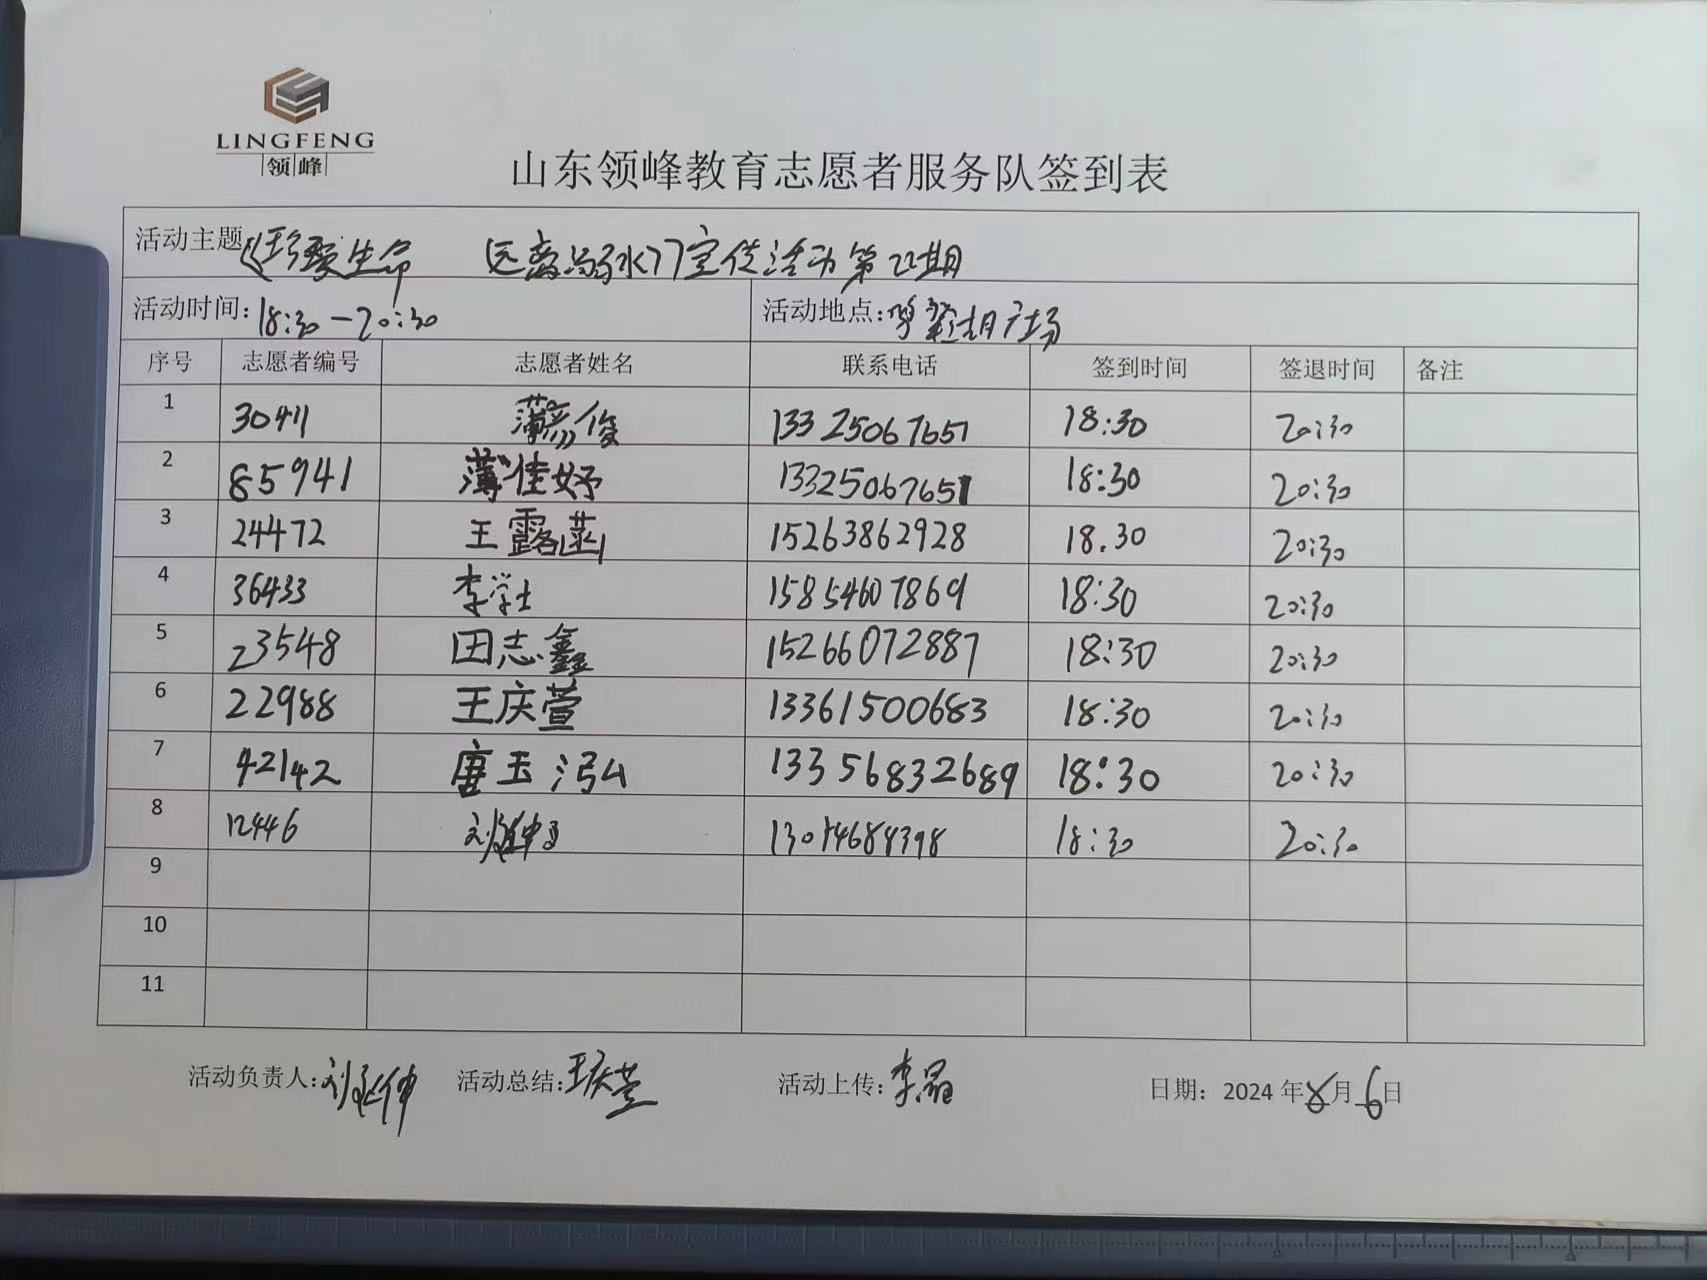 LINGFENG
领峰
山东领峰教育志愿者服务队签到表
活动主题《珍爱生命 远离溺水》宣传活动第22期
活动时间:18:30-20:30 活动地点:湖广场
序号 志愿者编号 志愿者姓名 联系电话 签到时间 签退时间 备注
1 30411 薄彦俊 13325067651 18:30 20:30
2 85941 薄佳妤 13325067651 18:30 20:30
3 24472 王露菡 15263862928 18.30 20:30
4 36433 李学士 15854607869 18:30 20:30
5 23548 田志鑫 15266072887 18:30 20:30
6 22988 王庆萱 13361500683 18:30 20:30
7 42142 唐玉泓 13356832689 18:30 20:30
8 12446 刘延伸 13014684398 18:30 20:30
9
10
11
活动负责人:刘延伸 活动总结:王庆萱 活动上传:李晶 日期: 2024年8月6日